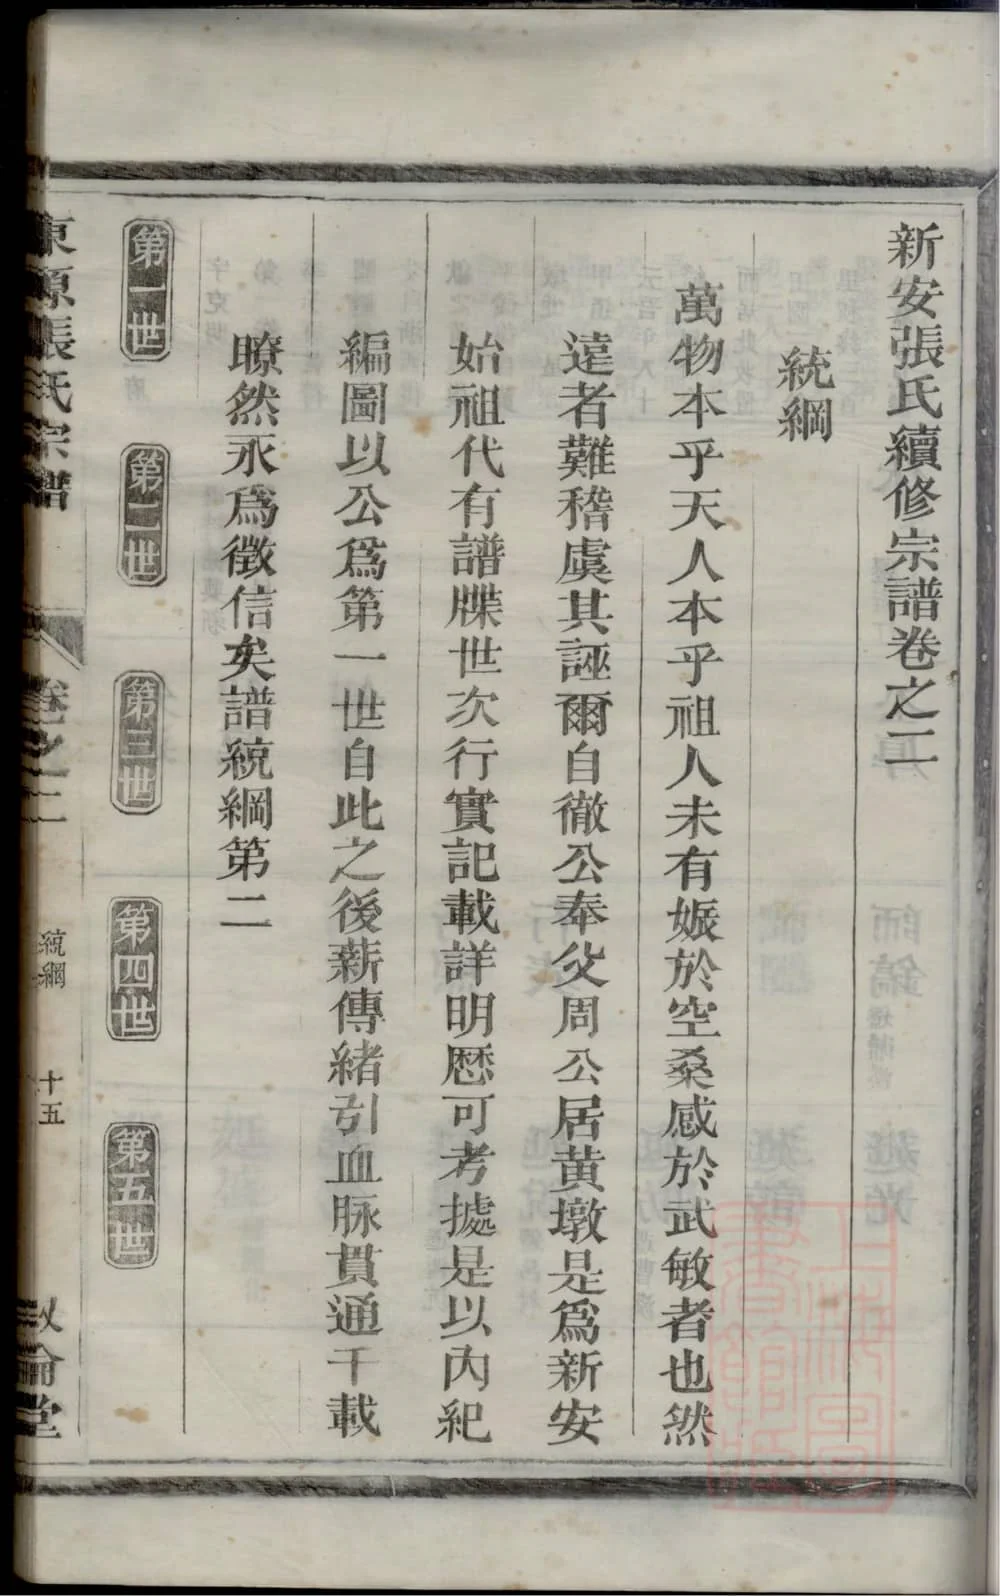 新安張氏續修宗譜卷之二
統綱
萬物本乎天人本乎祖人未有娠於空桑感於武敏者也然
遠者難稽虞其誣爾自徹公奉父周公居黄墩是爲新安
始祖代有譜牒世次行實記載詳明歴可考據是以内紀
編圖以公爲第一世自此之後薪傳緒引血脉貫通千載
瞭然永爲徵信矣譜統綱第二
第一世 第二世 第三世 第四世 第五世
東源張氏宗譜 卷之二 統綱 十五 敘倫堂